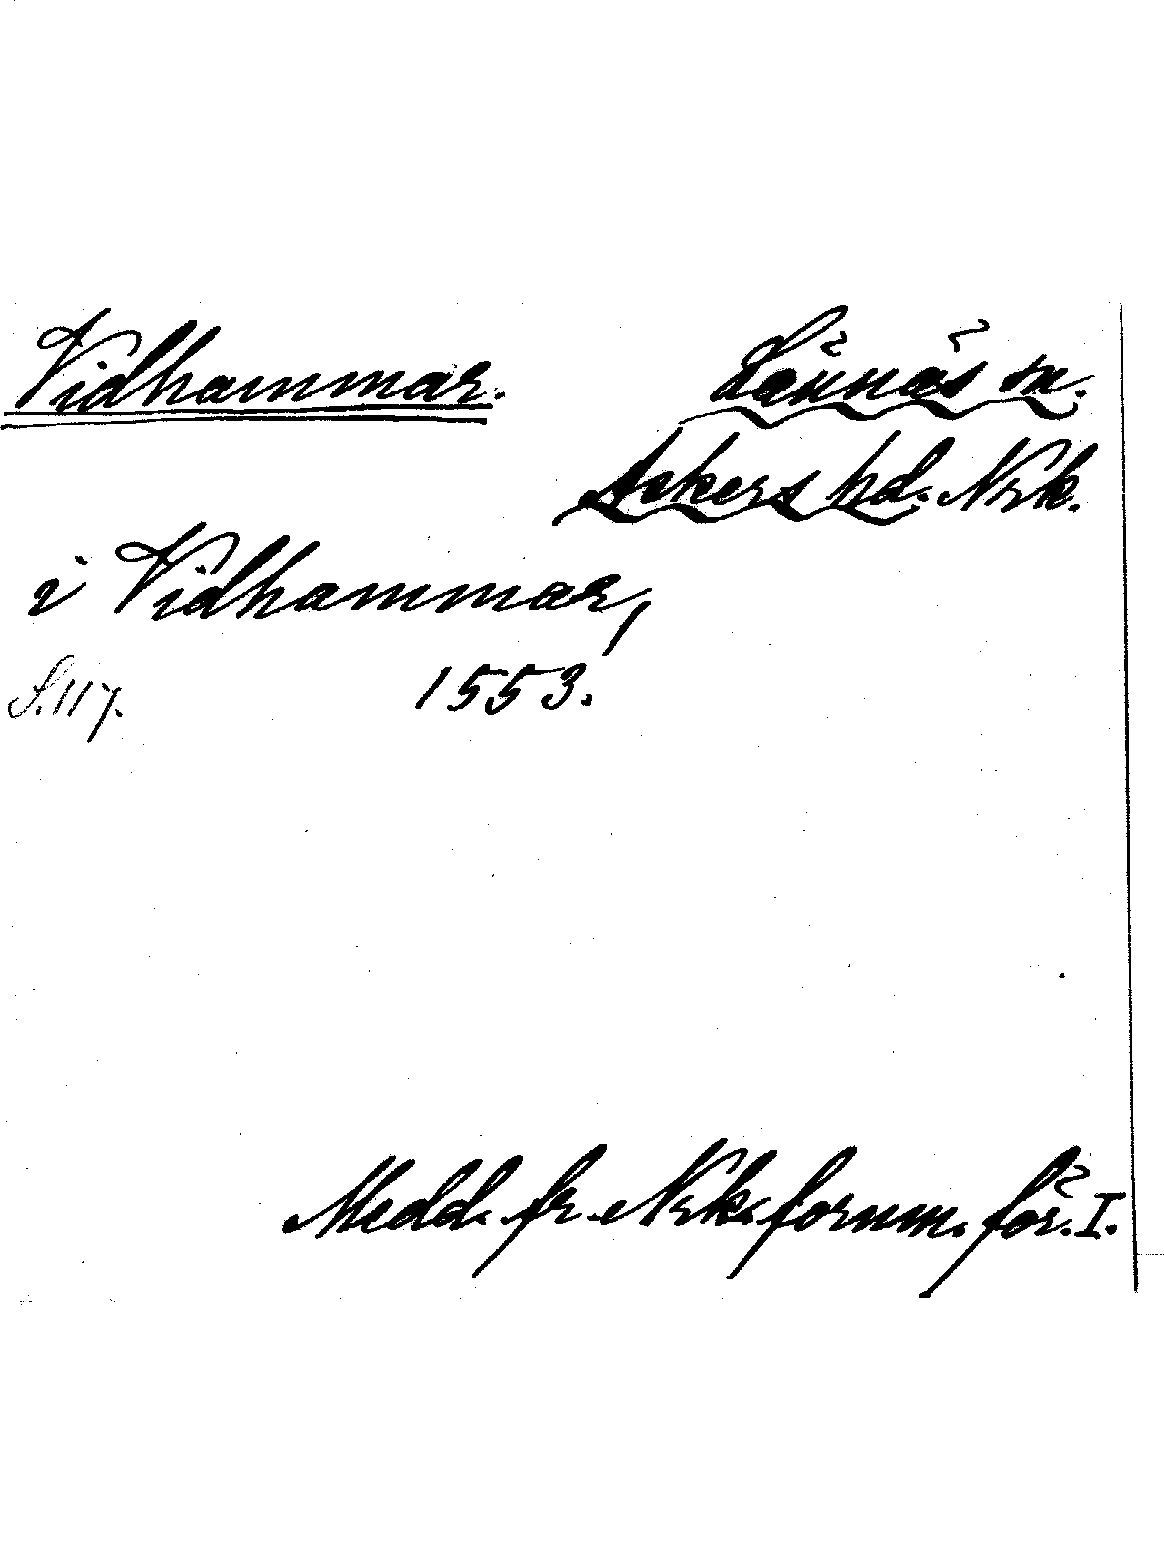 Vidhammar.
Lännäs sn.
Askers hd. Nrk.
i Vidhammar,
S. 117.
1553.
Medd. fr. Nrks fornm. för. I.